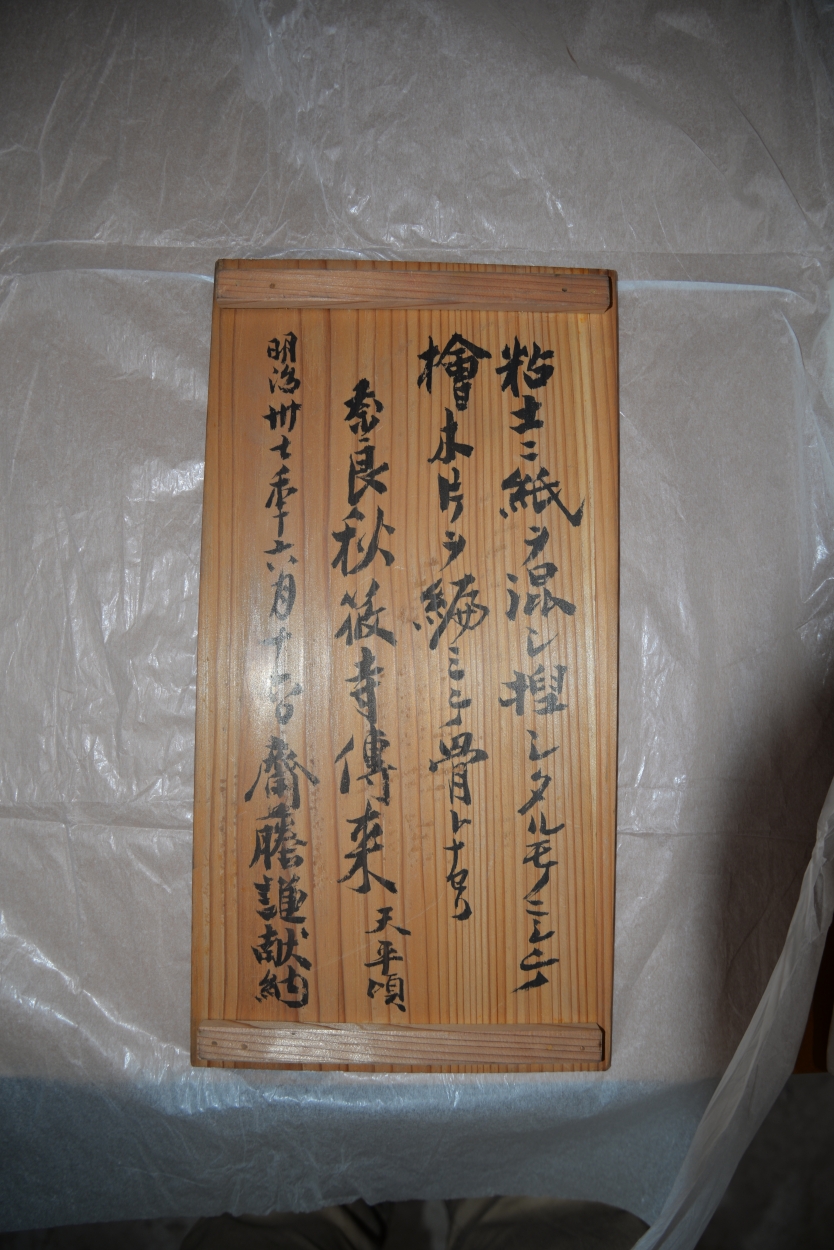 粘土ニ紙ヲ混シ捏シタルモノニシテ
檜木片ヲ編ミシ骨トナセリ
奈良秋篠寺傳来 天平頃
明治卅七年六月十一日 齋藤謙献納